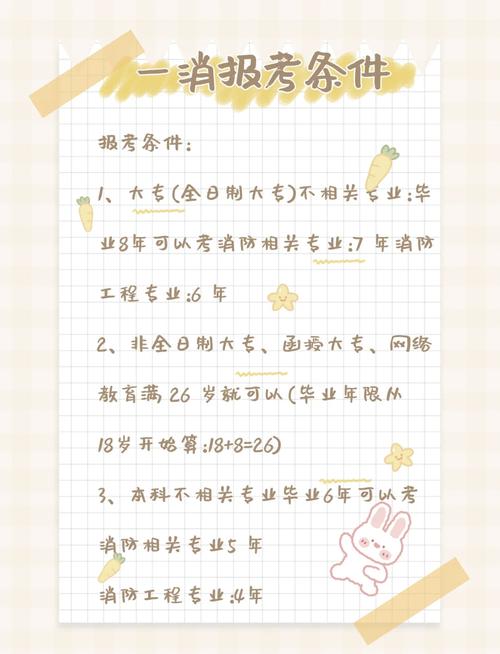 一消报考条件
报考条件:
1、大专(全日制大专)不相关专业:毕
业8年可以考消防相关专业:7 年消防
工程专业:6 年
2、非全日制大专、函授大专、网络
教育满 26 岁就可以(毕业年限从
18岁开始算:18+8=26)
3、本科不相关专业毕业6年可以考
消防相关专业5 年
消防工程专业:4年